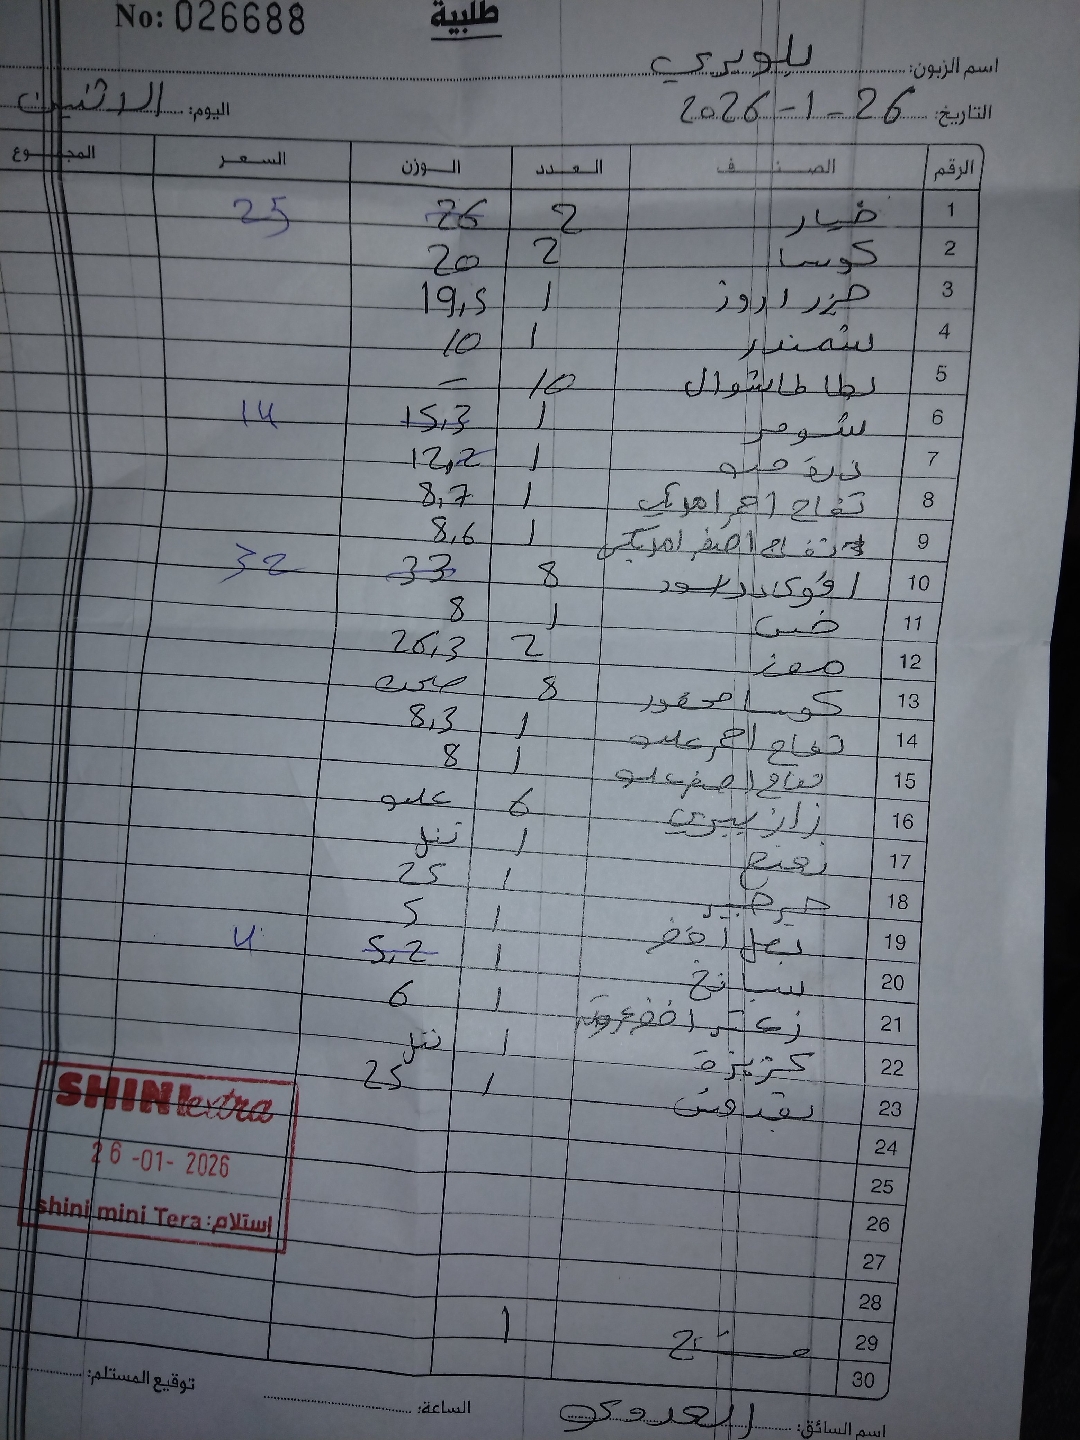 No: 026688
طلبية
اسم الزبون: بلويري
التاريخ: 26-1-2026
اليوم: الاثنين
الرقم الصنف العدد الوزن السعر المجموع
1 خيار 2 26 25
2 كوسا 2 20
3 جزر اروز 1 19,5
4 شمندر 1 10
5 بطاطا شوال 10 -
6 شومر 1 15,3 14
7 1 12,2
8 تفاح احمر امريكي 1 8,7
9 تفاح اصفر امريكي 1 8,6
10 افوكادو اسود 8 33 32
11 خس 1 8
12 موز 2 26,3
13 كوسا محفور 8 صحن
14 تفاح احمر علبو 1 8,3
15 تفاح اصفر علبو 1 8
16 6 علبو
17 نعنع 1 تنل
18 جرجير 1 25
19 بصل اخضر 1 5
20 سبانخ 1 5,2 4
21 زعتر اخضر 1 6
22 كزبرة 1 تنل
23 بقدونس 1 25
24
25
26
27
28
29 1
30
SHINI extra
26-01-2026
shini mini Tera :إستلام
توقيع المستلم:
الساعة:
اسم السائق: